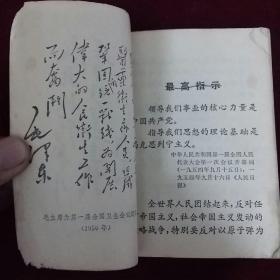 卫生工作人员
巩固统一战线为开展
伟大的人民卫生工作
而奋斗
毛泽东
毛主席为第一届全国卫生会议
(1950 年)
最高指示
领导我们事业的核心力量是
中国共产党。
指导我们思想的理论基础是
马克思列宁主义。
中华人民共和国第一届全国人民
代表大会第一次会议开幕词
(一九五四年九月十五日),
一九五四年九月十六日《人民日
报》
全世界人民团结起来,反对任
帝国主义、社会帝国主义发动的
略战争,特别要反对以原子弹为